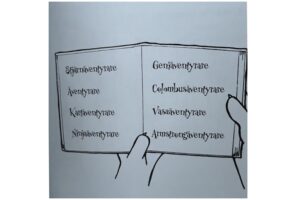 Stjärnäventyrare
Äventyrare
Kartäventyrare
Ninjaäventyrare
Genjäventyrare
Colombusäventyrare
Vasaäventyrare
Armstrongäventyrare